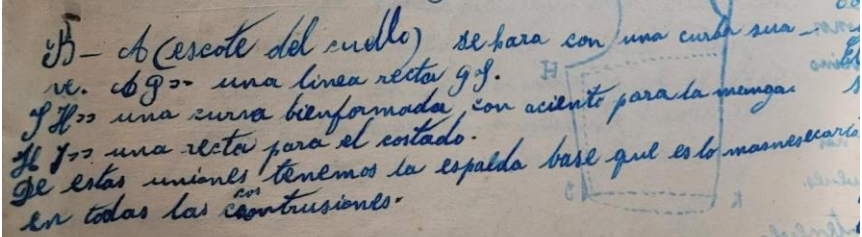 B - A (escote del cuello) se hara con una curba sua-
ve. A g >> una linea recta g J.
J H >> una curva bienformada, con aciento para la manga.
H J >> una recta para el costado.
De estas uniones tenemos la espalda base que es lo masnesecario
en todas las contrusiones.
H
J
K